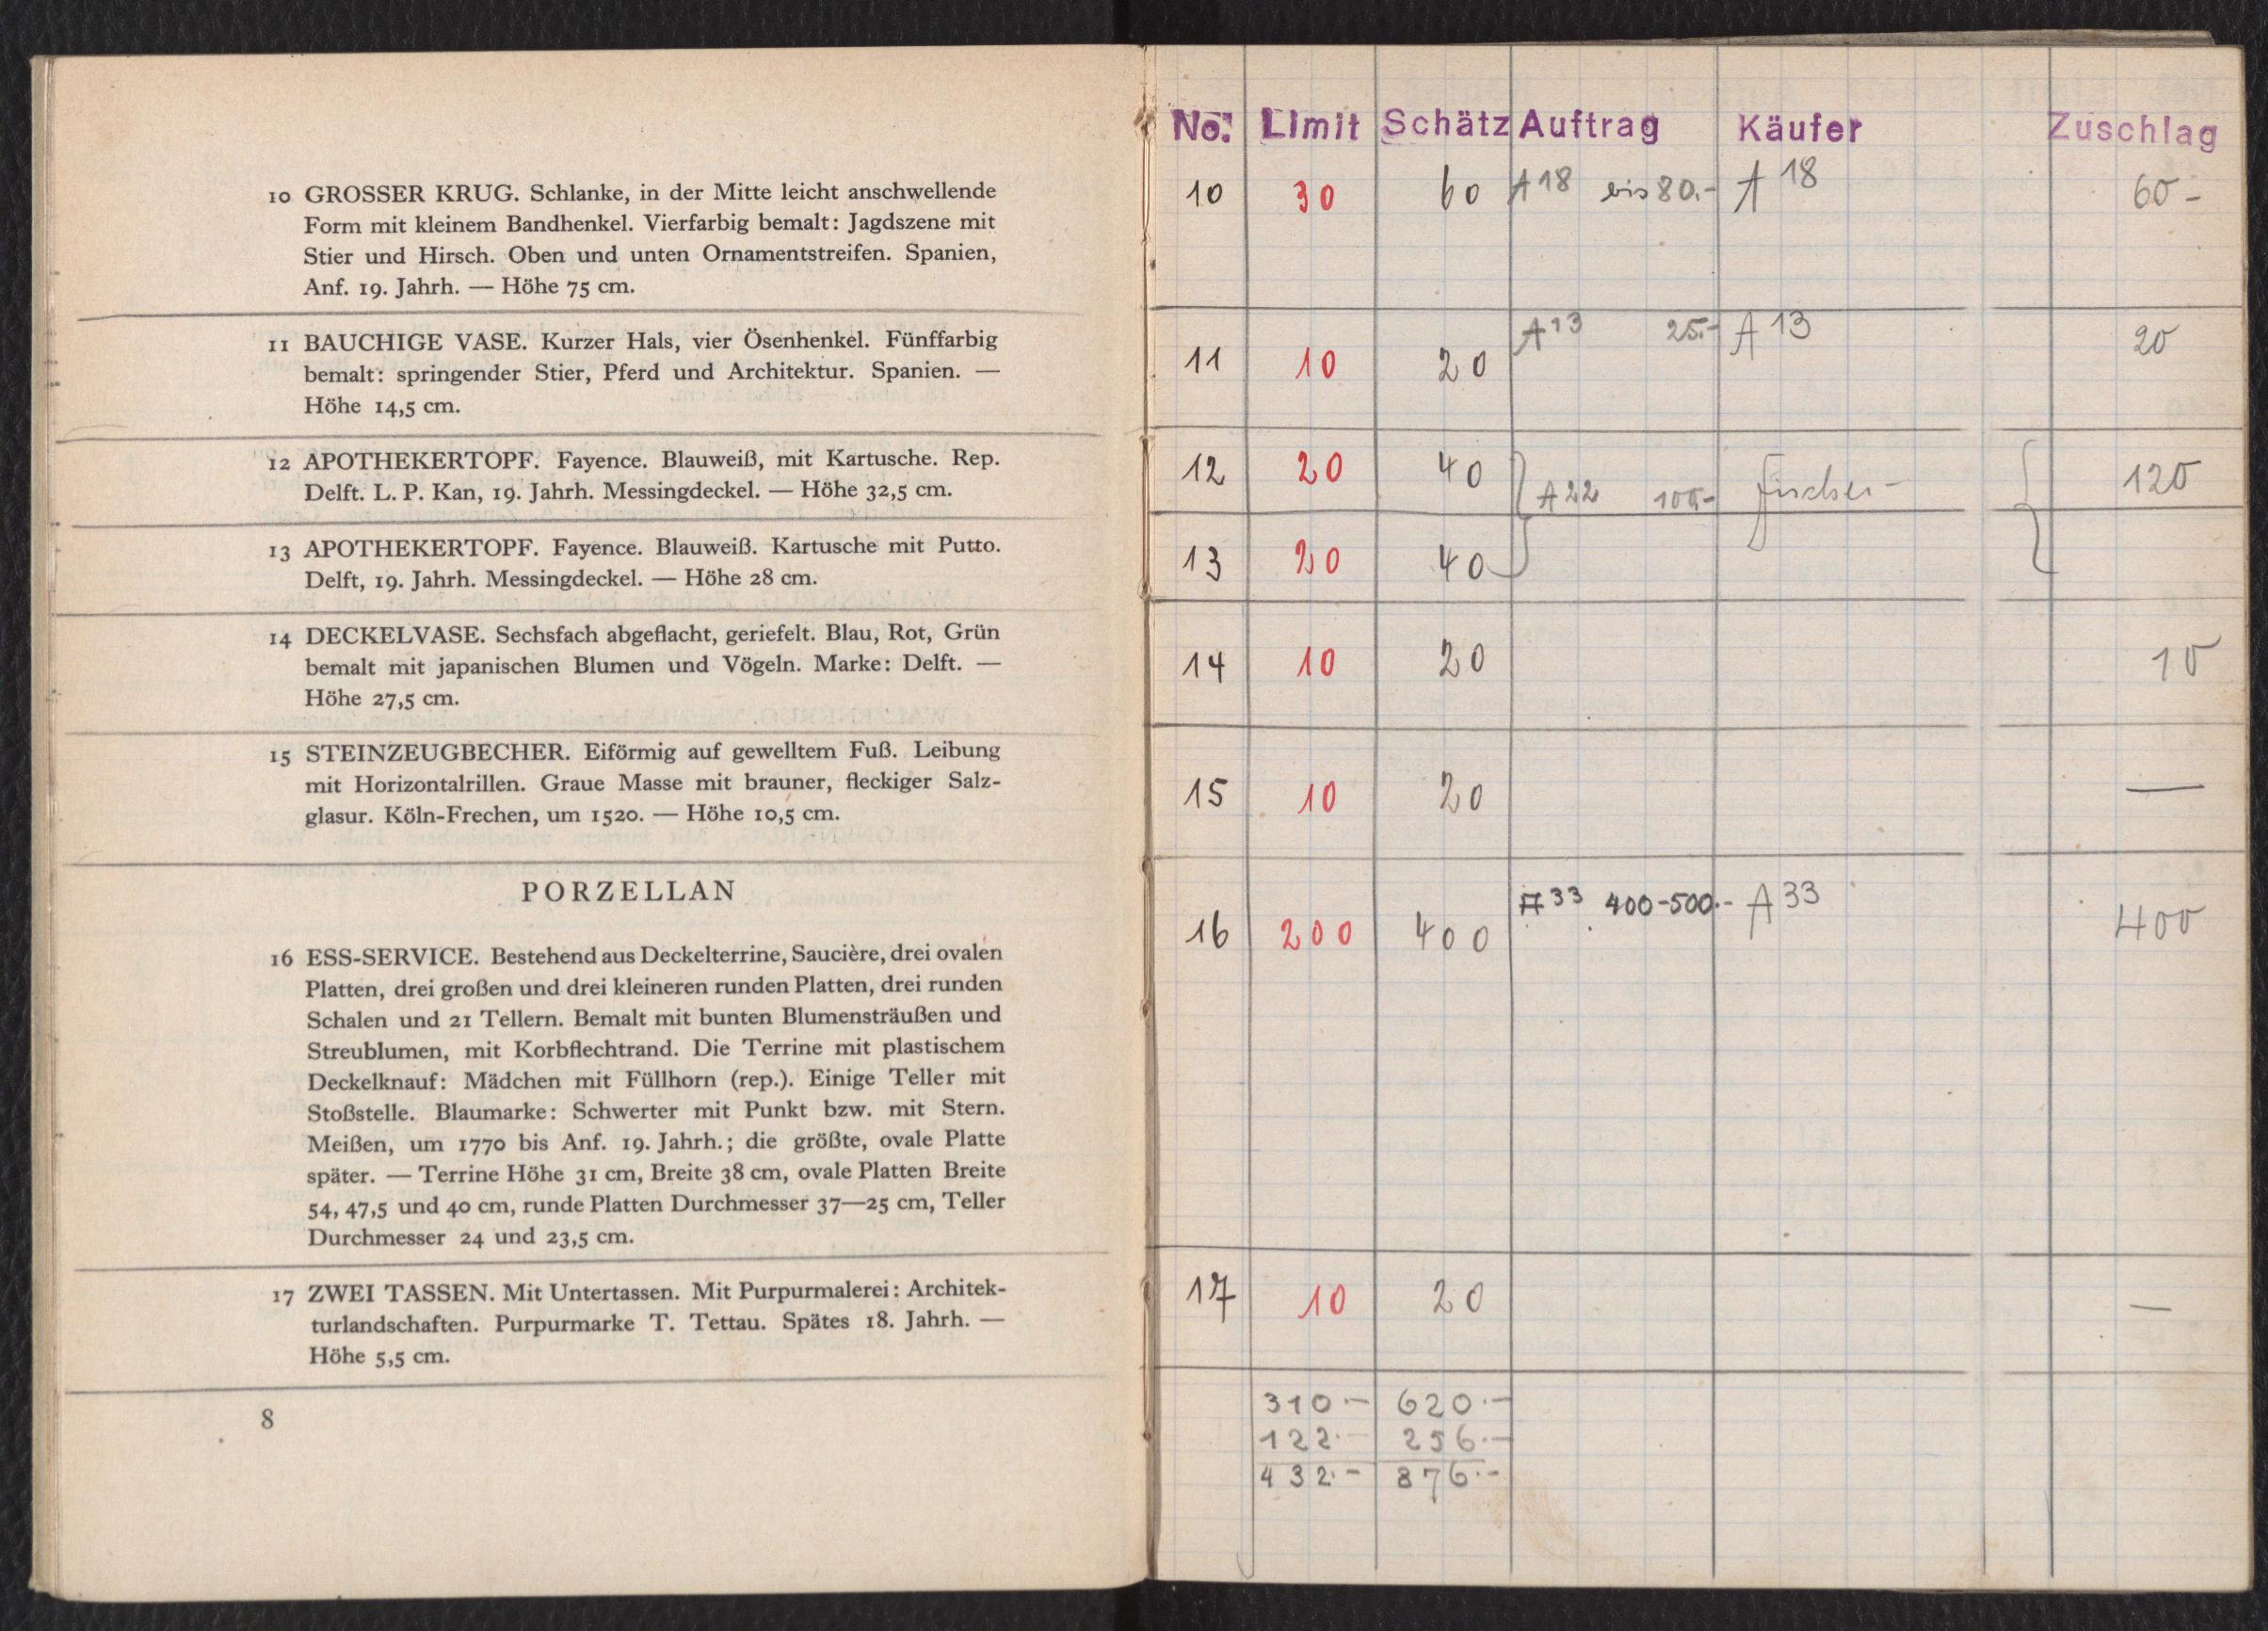 10 GROSSER KRUG. Schlanke, in der Mitte leicht anschwellende
Form mit kleinem Bandhenkel. Vierfarbig bemalt: Jagdszene mit
Stier und Hirsch. Oben und unten Ornamentstreifen. Spanien,
Anf. 19. Jahrh. — Höhe 75 cm.
11 BAUCHIGE VASE. Kurzer Hals, vier Ösenhenkel. Fünffarbig
bemalt: springender Stier, Pferd und Architektur. Spanien. —
Höhe 14,5 cm.
12 APOTHEKERTOPF. Fayence. Blauweiß, mit Kartusche. Rep.
Delft. L. P. Kan, 19. Jahrh. Messingdeckel. — Höhe 32,5 cm.
13 APOTHEKERTOPF. Fayence. Blauweiß. Kartusche mit Putto.
Delft, 19. Jahrh. Messingdeckel. — Höhe 28 cm.
14 DECKELVASE. Sechsfach abgeflacht, geriefelt. Blau, Rot, Grün
bemalt mit japanischen Blumen und Vögeln. Marke: Delft. —
Höhe 27,5 cm.
15 STEINZEUGBECHER. Eiförmig auf gewelltem Fuß. Leibung
mit Horizontalrillen. Graue Masse mit brauner, fleckiger Salz-
glasur. Köln-Frechen, um 1520. — Höhe 10,5 cm.
PORZELLAN
16 ESS-SERVICE. Bestehend aus Deckelterrine, Saucière, drei ovalen
Platten, drei großen und drei kleineren runden Platten, drei runden
Schalen und 21 Tellern. Bemalt mit bunten Blumensträußen und
Streublumen, mit Korbflechtrand. Die Terrine mit plastischem
Deckelknauf: Mädchen mit Füllhorn (rep.). Einige Teller mit
Stoßstelle. Blaumarke: Schwerter mit Punkt bzw. mit Stern.
Meißen, um 1770 bis Anf. 19. Jahrh.; die größte, ovale Platte
später. — Terrine Höhe 31 cm, Breite 38 cm, ovale Platten Breite
54, 47,5 und 40 cm, runde Platten Durchmesser 37—25 cm, Teller
Durchmesser 24 und 23,5 cm.
17 ZWEI TASSEN. Mit Untertassen. Mit Purpurmalerei: Architek-
turlandschaften. Purpurmarke T. Tettau. Spätes 18. Jahrh. —
Höhe 5,5 cm.
8
No. Limit Schätz Auftrag Käufer Zuschlag
10 30 60 A18 bis 80.- A 18 60 -
11 10 20 A13 25.- A 13 20
12 20 40 A22 100.- Fischer 120
13 20 40
14 10 20 10
15 10 20 —
16 200 400 A33 400-500.- A 33 400
17 10 20 —
310.- 620.-
122.- 256.-
432.- 876.-